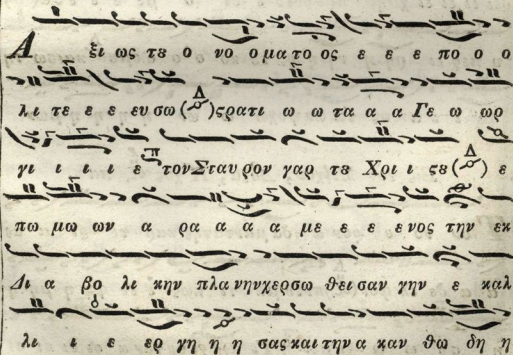 Α ξι ως τȣ ο νο ο μα το ος ε ε ε πο ο ο
λι τε ε ε ευ σω (Δ) ϛρατι ω ω τα α α Γε ω ωρ
γι ι ι ι ε π τον Σταυ ρον γαρ τȣ Χρι ι ϛȣ (Δ) ε
πω μω ων α ρα α α α με ε ε ε νος την εκ
Δι α βο λι κην πλα νην χερσω θει σαν γην ε καλ
λι ι ε ερ γη η η σας και την α καν θω δη η